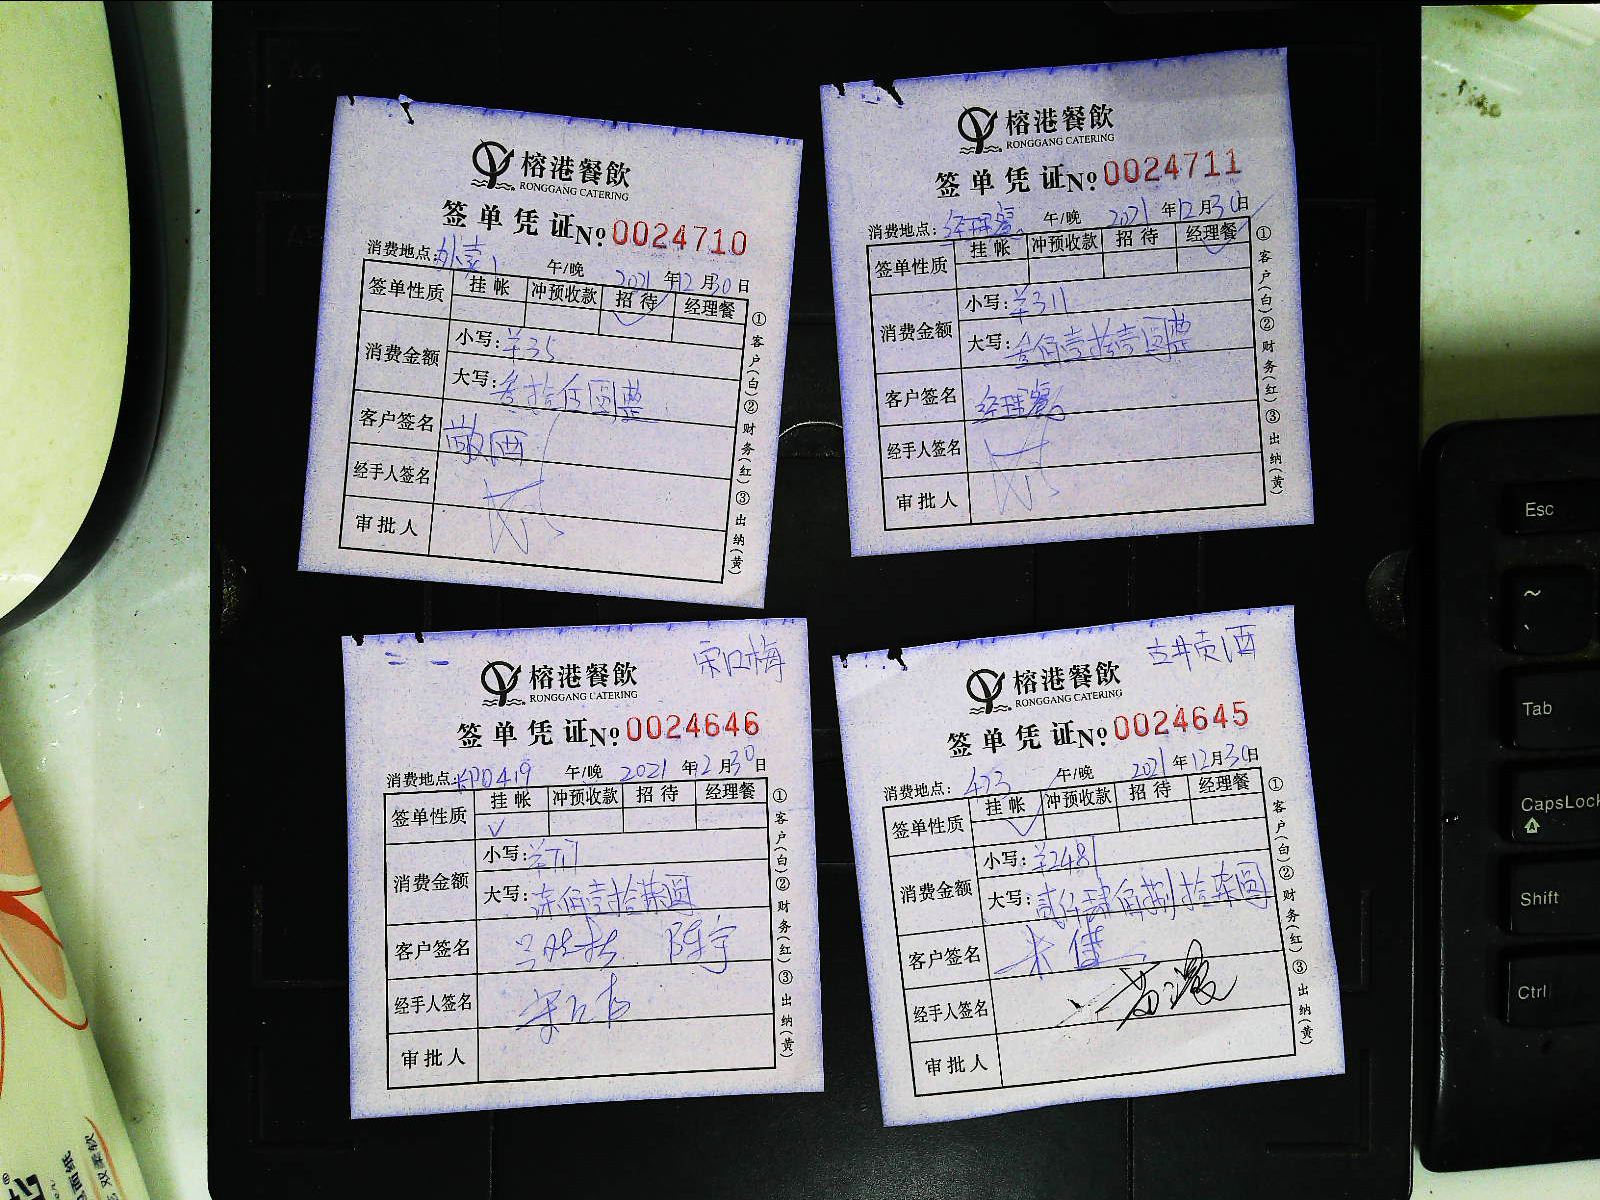 榕港餐飲
RONGGANG CATERING
签单凭证 No 0024710
消费地点: 外卖 午/晚 2021年12月30日
签单性质 挂帐 冲预收款 招待 经理餐
✓
消费金额 小写: ¥35
大写: 叁拾伍圆整
客户签名
经手人签名
审批人
①客户(白)②财务(红)③出纳(黄)
榕港餐飲
RONGGANG CATERING
签单凭证 No 0024711
消费地点: 经理餐 午/晚 2021年12月30日
签单性质 挂帐 冲预收款 招待 经理餐
✓
消费金额 小写: ¥311
大写: 叁佰壹拾壹圆整
客户签名 经理餐
经手人签名
审批人
①客户(白)②财务(红)③出纳(黄)
宋口梅
榕港餐飲
RONGGANG CATERING
签单凭证 No 0024646
消费地点: 午/晚 2021年12月30日
签单性质 挂帐 冲预收款 招待 经理餐
✓
消费金额 小写: ¥717
大写: 柒佰壹拾柒圆
客户签名 陈宇
经手人签名
审批人
①客户(白)②财务(红)③出纳(黄)
古井贡酒
榕港餐飲
RONGGANG CATERING
签单凭证 No 0024645
消费地点: 423 午/晚 2021年12月30日
签单性质 挂帐 冲预收款 招待 经理餐
✓
消费金额 小写: ¥248
大写: 贰仟肆佰捌拾柒圆
客户签名
经手人签名
审批人
①客户(白)②财务(红)③出纳(黄)
Esc
~
Tab
CapsLock
Shift
Ctrl